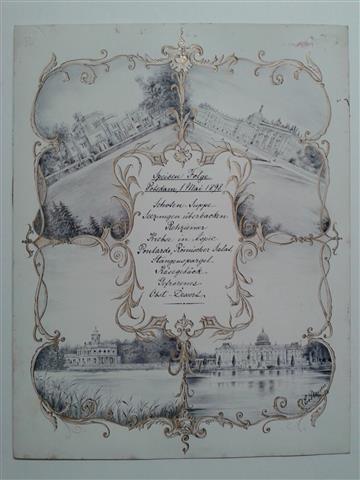 Speisen Folge
Potsdam, 1 Mai 1898
Schoten Suppe
Seezungen überbacken
Rehziemer
Krebse in Aspic
Poularde, Römischer Salat
Stangenspargel
Käsegebäck
Gefrorenes
Obst - Dessert